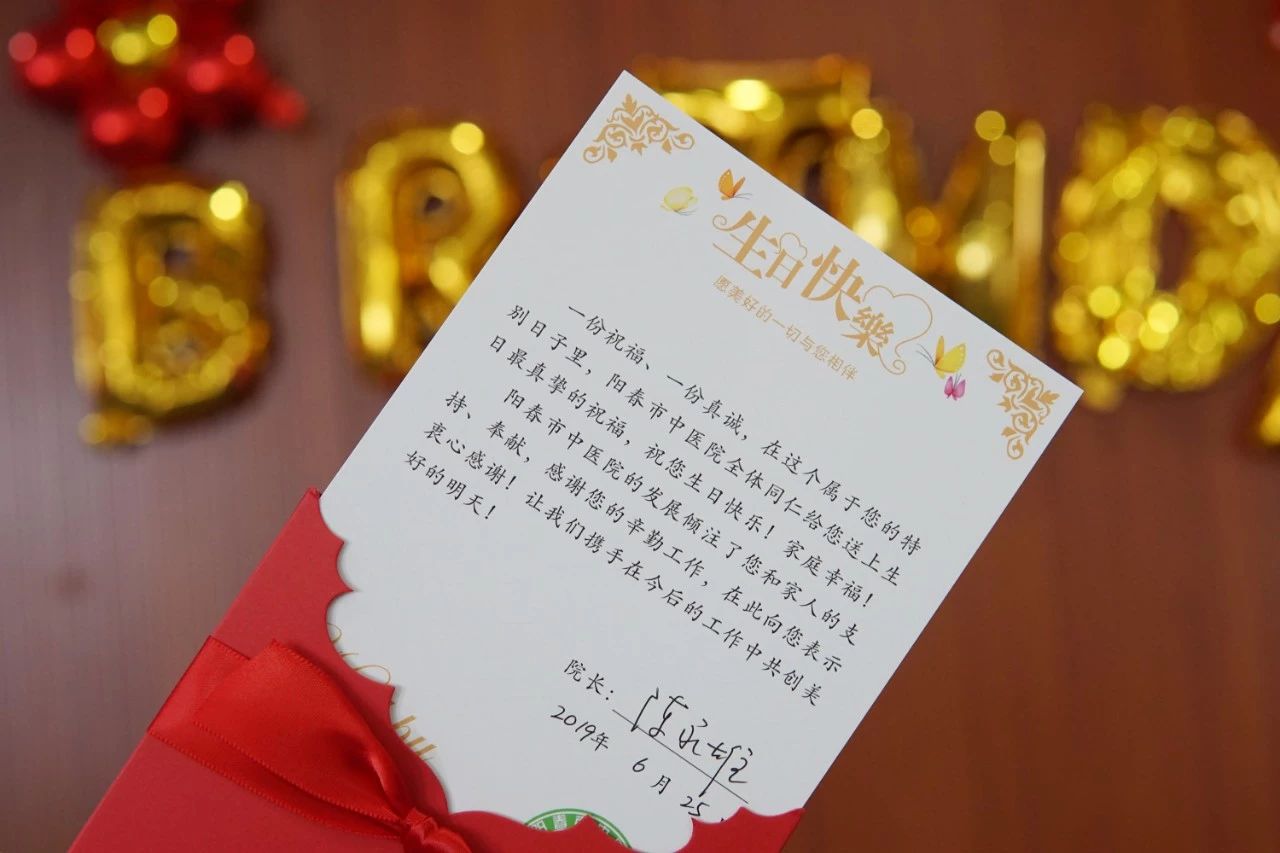 生日快樂
愿美好的一切与您相伴
一份祝福、一份真诚，在这个属于您的特
别日子里，阳春市中医院全体同仁给您送上生
日最真挚的祝福，祝您生日快乐！家庭幸福！
阳春市中医院的发展倾注了您和家人的支
持、奉献，感谢您的辛勤工作，在此向您表示
衷心感谢！让我们携手在今后的工作中共创美
好的明天！
院长：
2019年 6月 25